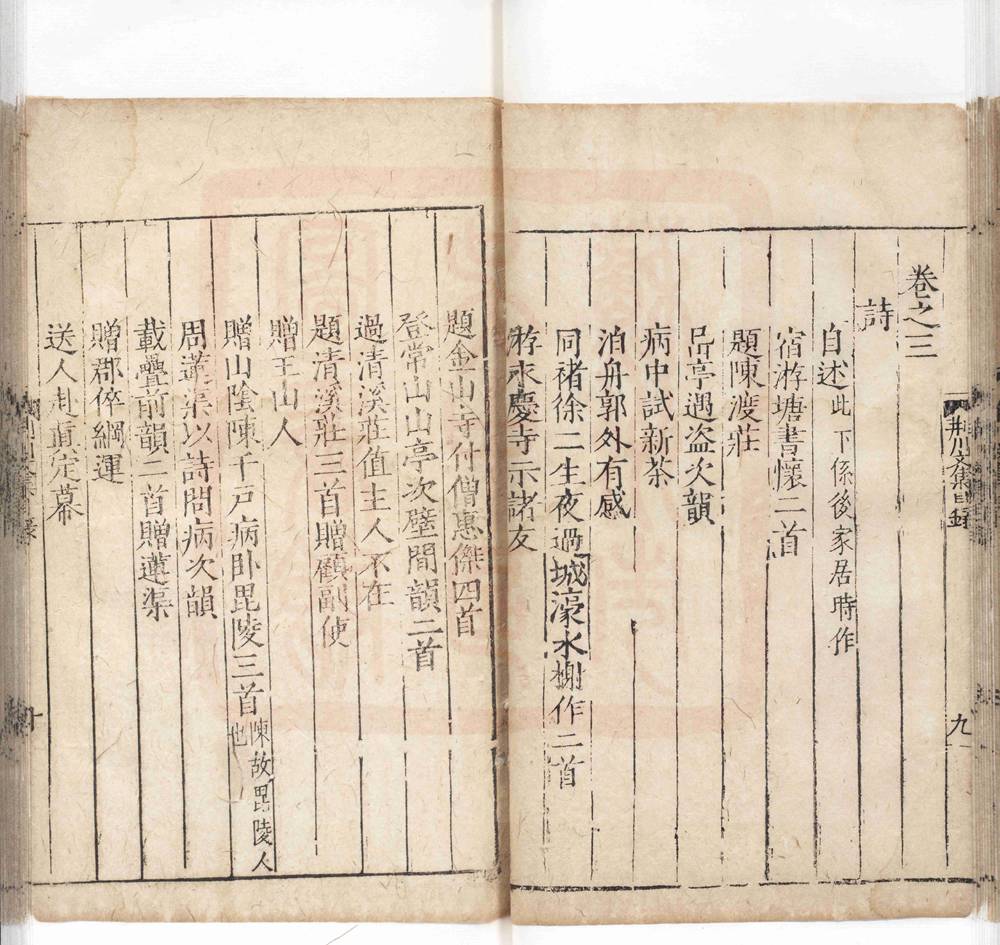 卷之三
詩
自述此下係後家居時作
宿游塘書懷二首
題陳渡莊
呂亭遇盗次韻
病中試新茶
泊舟郭外有感
同褚徐二生夜過城濠水榭作二首
游永慶寺示諸友
九
題金山寺付僧惠傑四首
登常山山亭次壁間韻二首
過清溪莊值主人不在
題清溪莊三首贈顧副使
贈王山人
贈山陰陳千戸病卧毘陵三首陳故毘陵人也
周蓮渠以詩問病次韻
載疊前韻二首贈蓮渠
贈郡倅綱運
送人赴真定幕
十